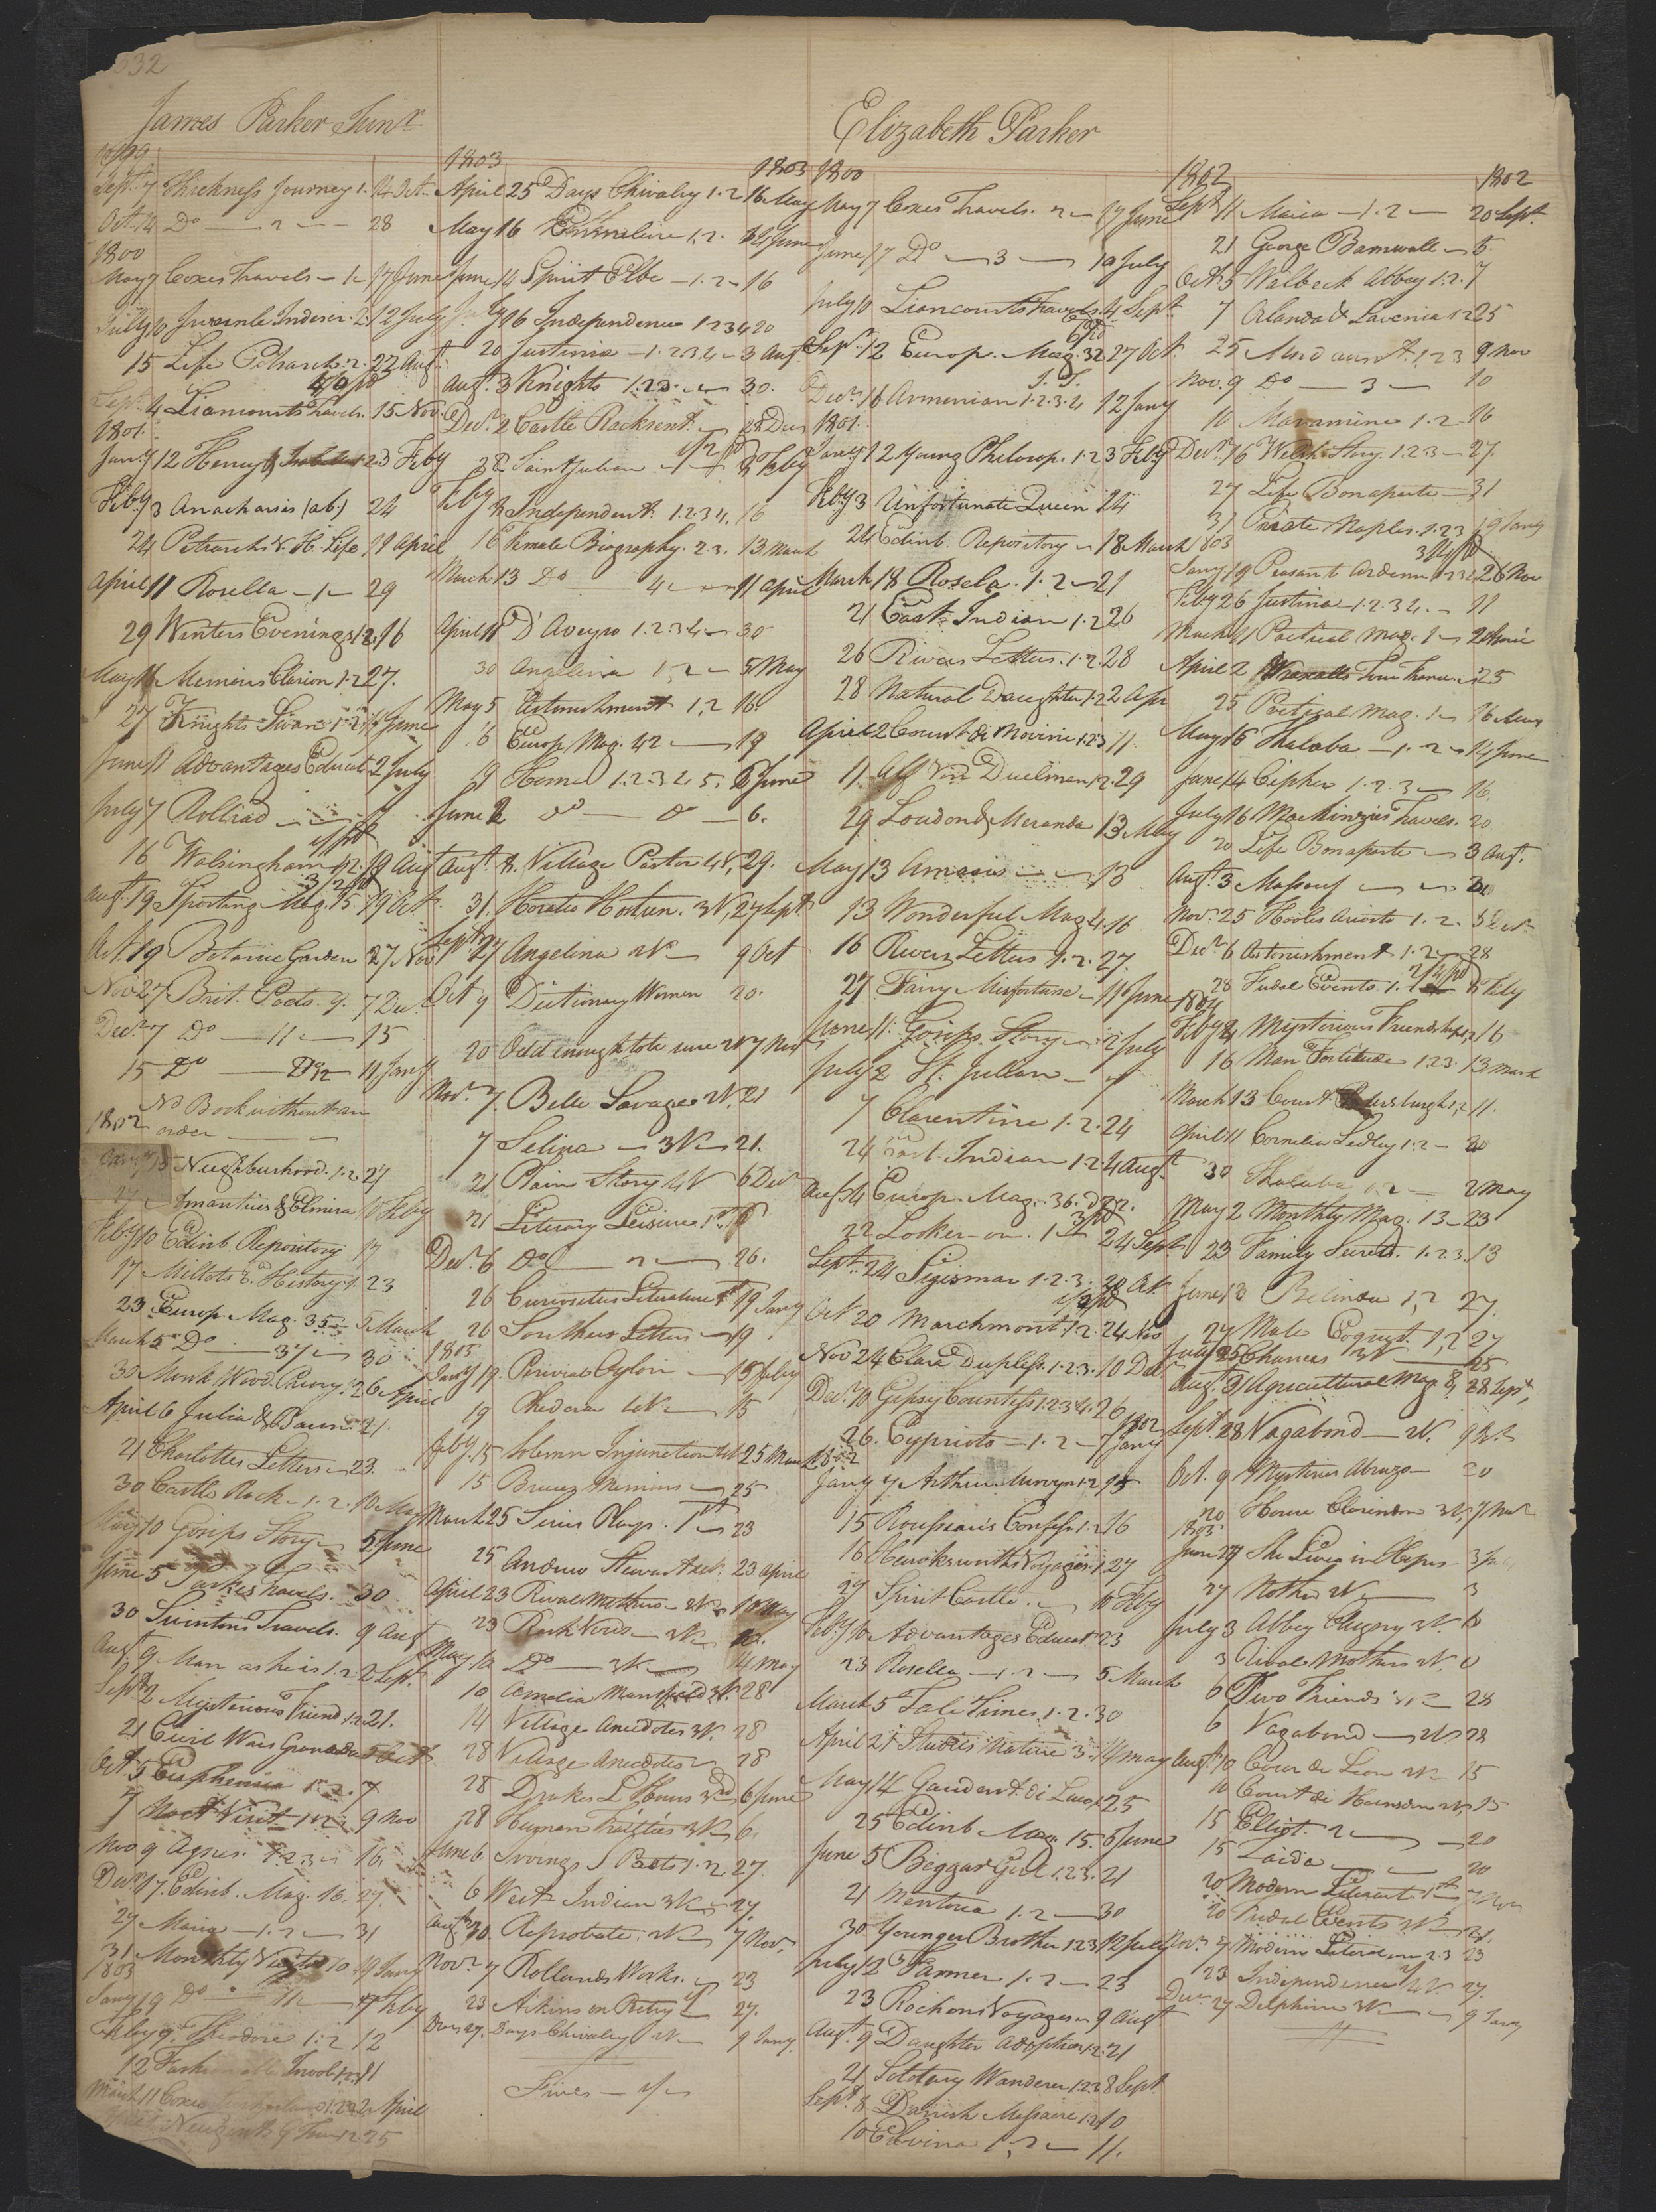 332
James Parker Junr
1799
Sept. 7 Thickness Journey 1. 14 Oct.
Oct. 14 Do — 2 — 28
1800
May 7 Coxes Travels — 1 — 17 June
July 10 Juvenile 2. 12 July
15 Life Petrarch. 2. 22 Aug.
Sept. 4 Liancourts Travels. 15 Nov.
1801.
Jany 12 Henry & 1.2.3 Feby
Feby 3 Anacharsis (ab) 24
24 Petrarch's V. H. Life 11 April
April 11 Rosella — 1 — 29
29 Winters Evenings 1.2. 16
May 16 Memoirs Clarion 1.2 27.
27 Knights Swan 1.2. June
June 11 Advantages Educat. 2 July
July 7 Rolliad —
16 Walsingham 19 Aug
Aug. 19 Sporting Mag. 15 19 Oct
Oct. 19 Botanic Garden 27 Nov
Nov 27 Brit. Poets. 9. 7 Dec.
Decr 7 Do — 11 — 15
15 Do — 12 11 Jany
No Book without an
1802 order —
15 Neighbourhood. 1.2 27
27 Amantius & Elmira 10 Feby
Feby 10 Edinb. Repository 17
17 Millots E. History 1. 23
23 Europ. Mag. 35 — 5 March
March 5 Do — 37 — 30
30 Monk Wood Priory. 6 April
April 6 Julia & Baron 21.
21 Charlottes Letters — 23.
30 Castle Rock — 1.2. 10 May
May 10 Gossips Story — 5 June
June 5 Parkes Travels. 30
30 Swintons Travels. 9 Aug
Aug. 9 Man as he is 1.2. 2 Sept.
Sept. 2 Mysterious Friend 1.2 21.
21 Civil Wars Granada 5 Oct
Oct. 5 Euphemia 1.2. 7
7 Noct. Visit — 1.2. 9 Nov
Nov 9 Agnes. 1.2.3 — 16.
Decr 17. Edinb. Mag. 16. 27.
27 Maria — 1.2 — 31
31 Monthly Visitor 10 — 19 Jany
1803
Jany 19 Do — 11 — 9 Feby
Feby 9. Theodore 1.2 12
12 11
March 11 Coxes 2 April
1803 1803
April 25 Days Chivalry 1.2 16 May
May 16 Emmeline 1,2. 14 June
June 14 Spirit Elbe — 1.2 — 16
July 16 Independence 1 2 3 4 20
20 Justinia — 1.2.3.4 — 3 Augt
Augt. 3 Knights 1.2.3. — 30.
Decr. 2 Castle Rackrent. 28 Decr
28 Saint Julian — 1 — 8 Feby
Feby 8 Independent. 1.2.3 4. 16
16 Female Biography. 2.3. 13 March
March 13 Do — 4 — 11 April
April 11 D'Aveyro 1.2.3.4 — 30
30 Angelina 1, 2 — 5 May
May 5 Astonishment 1, 2 16.
16 Europ Mag. 42 — 19
19 Home 1.2.3 4 5. 2 June
June 2 do — do — 6.
Augt. 8. Village Pastor 4 V, 29.
31. Horatio Holstien. 3 V, 27 Sept
Sept. 27 Angelina 2 V — 9 Oct
Oct 9 Dictionary Women 20.
20 Odd enough to be sure 2 V 7 Nov
Nov. 7. Belle Savages 2 V. 21
7 Selina — 3 V — 21.
21 Plain Story 4 V 6 Decr
21 Literary Leisure 1st 6
Decr. 6 Do — 2 — 26.
26 Curiosities Literature 1st 19 Jany
26 Southeys Letters — 19
1805
Jany 19. Percival Ceylon — 15 Feby
19 Phedora 4 V — 15
Feby. 15 Solemn Injunction 4 V 25 March
15 Bruces Memoirs — 25
March 25 Series Plays. 1st — 23
25 Andrew Stewart 23 April
April 23 Rival Mothers — 2 V — 10 May
23 — 3 V — 10.
May 10 Do — 3 V — 14 May
10 Amelia Mansfield 3 V. 28
14 Village Anecdotes 3 V. 28
28 Village Anecdotes 28
28 3 V 6 June
28 Human Frailties 3 V 6.
June 6 Irvings S Poets 1.2. 27.
6 West Indian 3 V — 27.
Augt. 30. Reprobate. 2 V — 7 Nov.
Novr. 7 Rollands Works. — 23
23 Aikins on Poetry — 27.
Decr 27. Days Chivalry 2 V — 9 Jany.
Fines — 1/ —
Elizabeth Parker
1800
May 7 Coxes Travels. 2 — 17 June
June 17 Do — 3 — 10 July
July 10 Liancourts Travels 4 Sept.
Sept. 12 Europ. Mag. 32 27 Oct.
Decr. 16 Armenian 1.2.3.4 12 Jany
1801.
Jany 12 Young Philosop. 1.2 3 Feby
Feby 3 Unfortunate Queen 24
24 Edinb. Repository — 18 March
March 18 Rosela. 1.2 — 21
21 East Indian 1.2 26
26 Rivers Letters. 1.2. 28
28 Natural Daughter 1.2 2 Apr
April 2 Count di Novini 1.2.3 11.
11. Alf Von Duelman 1.2. 29
29 Loudon & Meranda 13 May
May 13 Amasis — 13
13 Wonderful Mag 4. 16
16 Rivers Letters 1.2. 27.
27 Fairy Misfortune — 11 June
June 11. Gossips Story — 2 July
July 2 St. Julian —
7 Clarentine 1.2. 24
24 East. Indian 1.2 4 Augt.
Augt. 4 Europ. Mag. 36. 22.
22 Looker-on. 1 24 Sept.
Sept. 24 Sigismar 1.2.3. 20 Oct.
Oct 20 Marchmont 1.2. 24 Nov
Nov 24 Clara Duplessis. 1.2.3. 10 Dec.
Decr. 10 Gipsy Countess 1.2.3 4. 26
26. Cypriots — 1.2 — 7 Jany
1802
Jany 7 Arthur Mervyn 1.2 15
15 Rousseau's Confess. 1.2 16
16 Hawksworth's Voyages. 1. 27
27 Spirit Castle. — 10 Feby
Feby 10 Advantages Educat. 23
23 Rosella — 1.2 — 5 March
March 5 Tale Times. 1.2. 30
April 21 Studies Nature 3. 14 May
May 14 Gaudent. di Lucca 25
25 Edinb. Mag. 15. 5 June
June 5 Beggar Girl 1.2.3. 21
21 Mentoria 1.2 — 30
30 Younger Brother 1.2.3 12 July
July 12 Farmer 1.2 — 23
23 Rochons Voyages — 9 Augt
Augt. 9 Daughter Adoption 1.2. 21
21 Solotary Wanderer 1.2.3 8 Sept.
Sept. 8 Danish Massacre 1.2 10
10 Elvina 1, 2 — 11.
1802 1802
Sept 11 Maria — 1.2 — 20 Sept.
21 George Barnwall — 5.
Oct. 5 Walbeck Abbey 1.2. 7
7 Alanda & Lavenia 1.2 25
25 Mordaunt. 1.2.3 9 Nov
Nov. 9 Do — 3 — 10
10 Moramine 1.2 — 16
Decr. 16 Welsh Story. 1.2.3 — 27.
27 Life Bonaparte — 31
31 Pirate Naples. 1.2.3 19 Jany
1803
Jany 19 Peasant Ardenne 1.2.3 26 Nov
Feby 26 Justina — 1.2.3 4. — 11
March 11 Poetical Mag. 1 —
April 2 Wraxalls Tour France — 25
25 Poetical Mag. 1 — 16 May
May 16 Thalaba — 1.2 — 14 June
June 14 Cipher 1.2.3 — 16.
July 16 Mackinzies Travels. 20
20 Life Bonaparte — 3 Augt.
Augt. 3 Massouf — 20
Nov. 25 Hooles Ariosto 1.2. 6 Decr
Decr 6 Astonishment 1.2 — 28
28 Fudal Events 1. 8 Feby
1804
Feby 8 Mysterious Friendship 1,2 16
16 Man Fortitude 1.2.3. 13 March
March 13 Court Petersburgh 1,2 11.
April 11 Cornelia Sedley 1.2 — 30
30 Thalaba 1.2 — 2 May
May 2 Monthly Mag. 13 — 23
23 Family Secrets. 1.2.3. 13
June 13 Belinda 1, 2 27.
27 Male Coquet. 1, 2 27
July 25 Chances 3 V — 25
Augt. 31 Agricultural Mag. 8, 28 Sept,
Sept. 28 Vagabond — 2 V. 9 Oct.
Oct. 9 Mysteries Abruzo — 20
20 House Clarendon 3 V, 7 Nov
1805
June 27 She Lives in Hopes — 3 July
27 Nothing 2 V — 3
July 3 Abbey Clugny 3 V. 6
3 Rival Mothers 2 V. 6
6 Two Friends 3 V — 28
6 Vagabond — 2 V 28
Augt. 10 Cour de Lion 2 V — 15
10 Count di Hoensdern 2 V 15
15 Elliot. 2 — 20
15 Zaida — 20
20 Modern Literature 1st — 7 Nov
20 Fudal Events 3 V — 21.
Novr. 7 Modern Literature 2.3 23
23 Independence 4 V. 27.
Decr 27 Delphine 3 V — 9 Jany